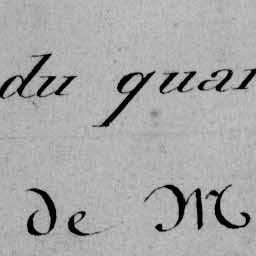 du quar
de M